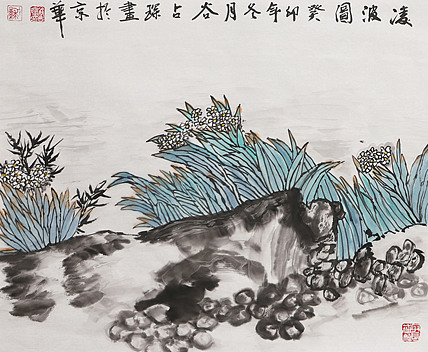 凌波圖癸卯年冬月谷占琢畫於京華